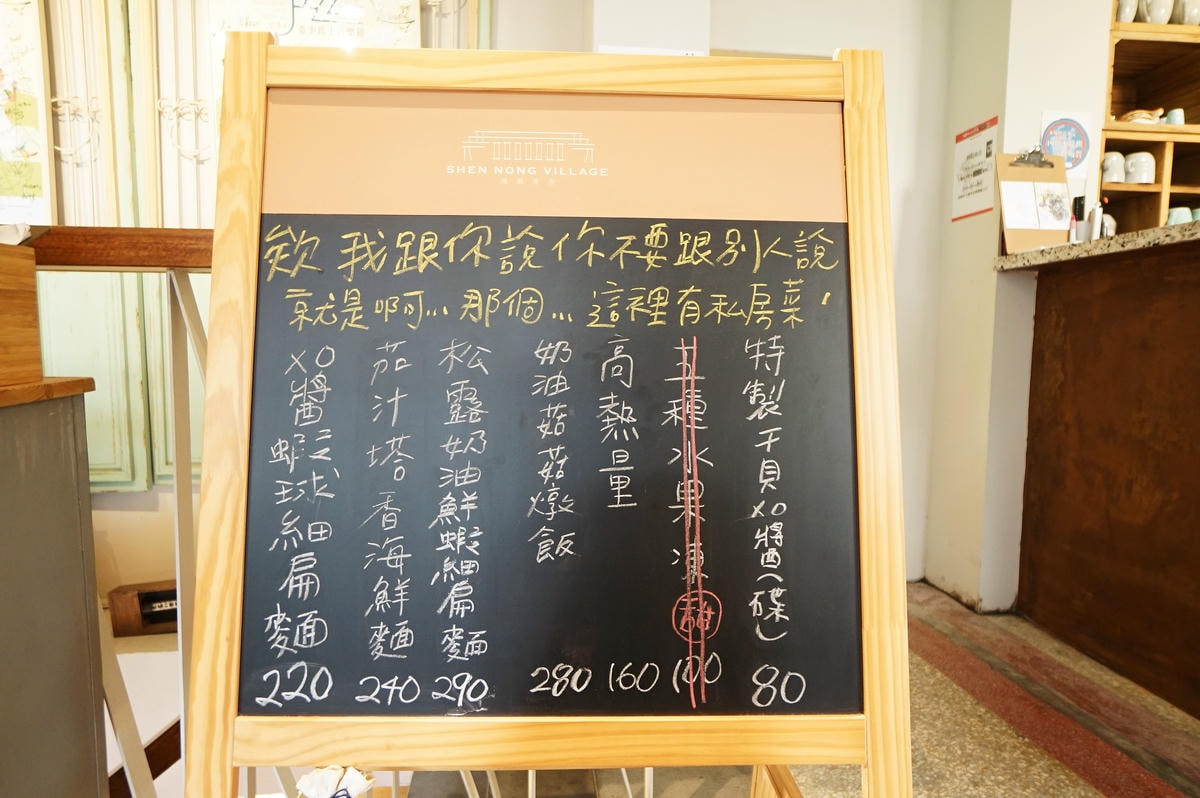 SHEN NONG VILLAGE
欸 我跟你說 你不要跟別人說
就是啊... 那個... 這裡有私房菜,
特製干貝XO醬(碟) 80
五種水果凍 甜 100
高熱量 160
奶油菇菇燉飯 280
松露奶油鮮蝦細扁麵 290
茄汁塔香海鮮麵 240
XO醬蝦球細扁麵 220